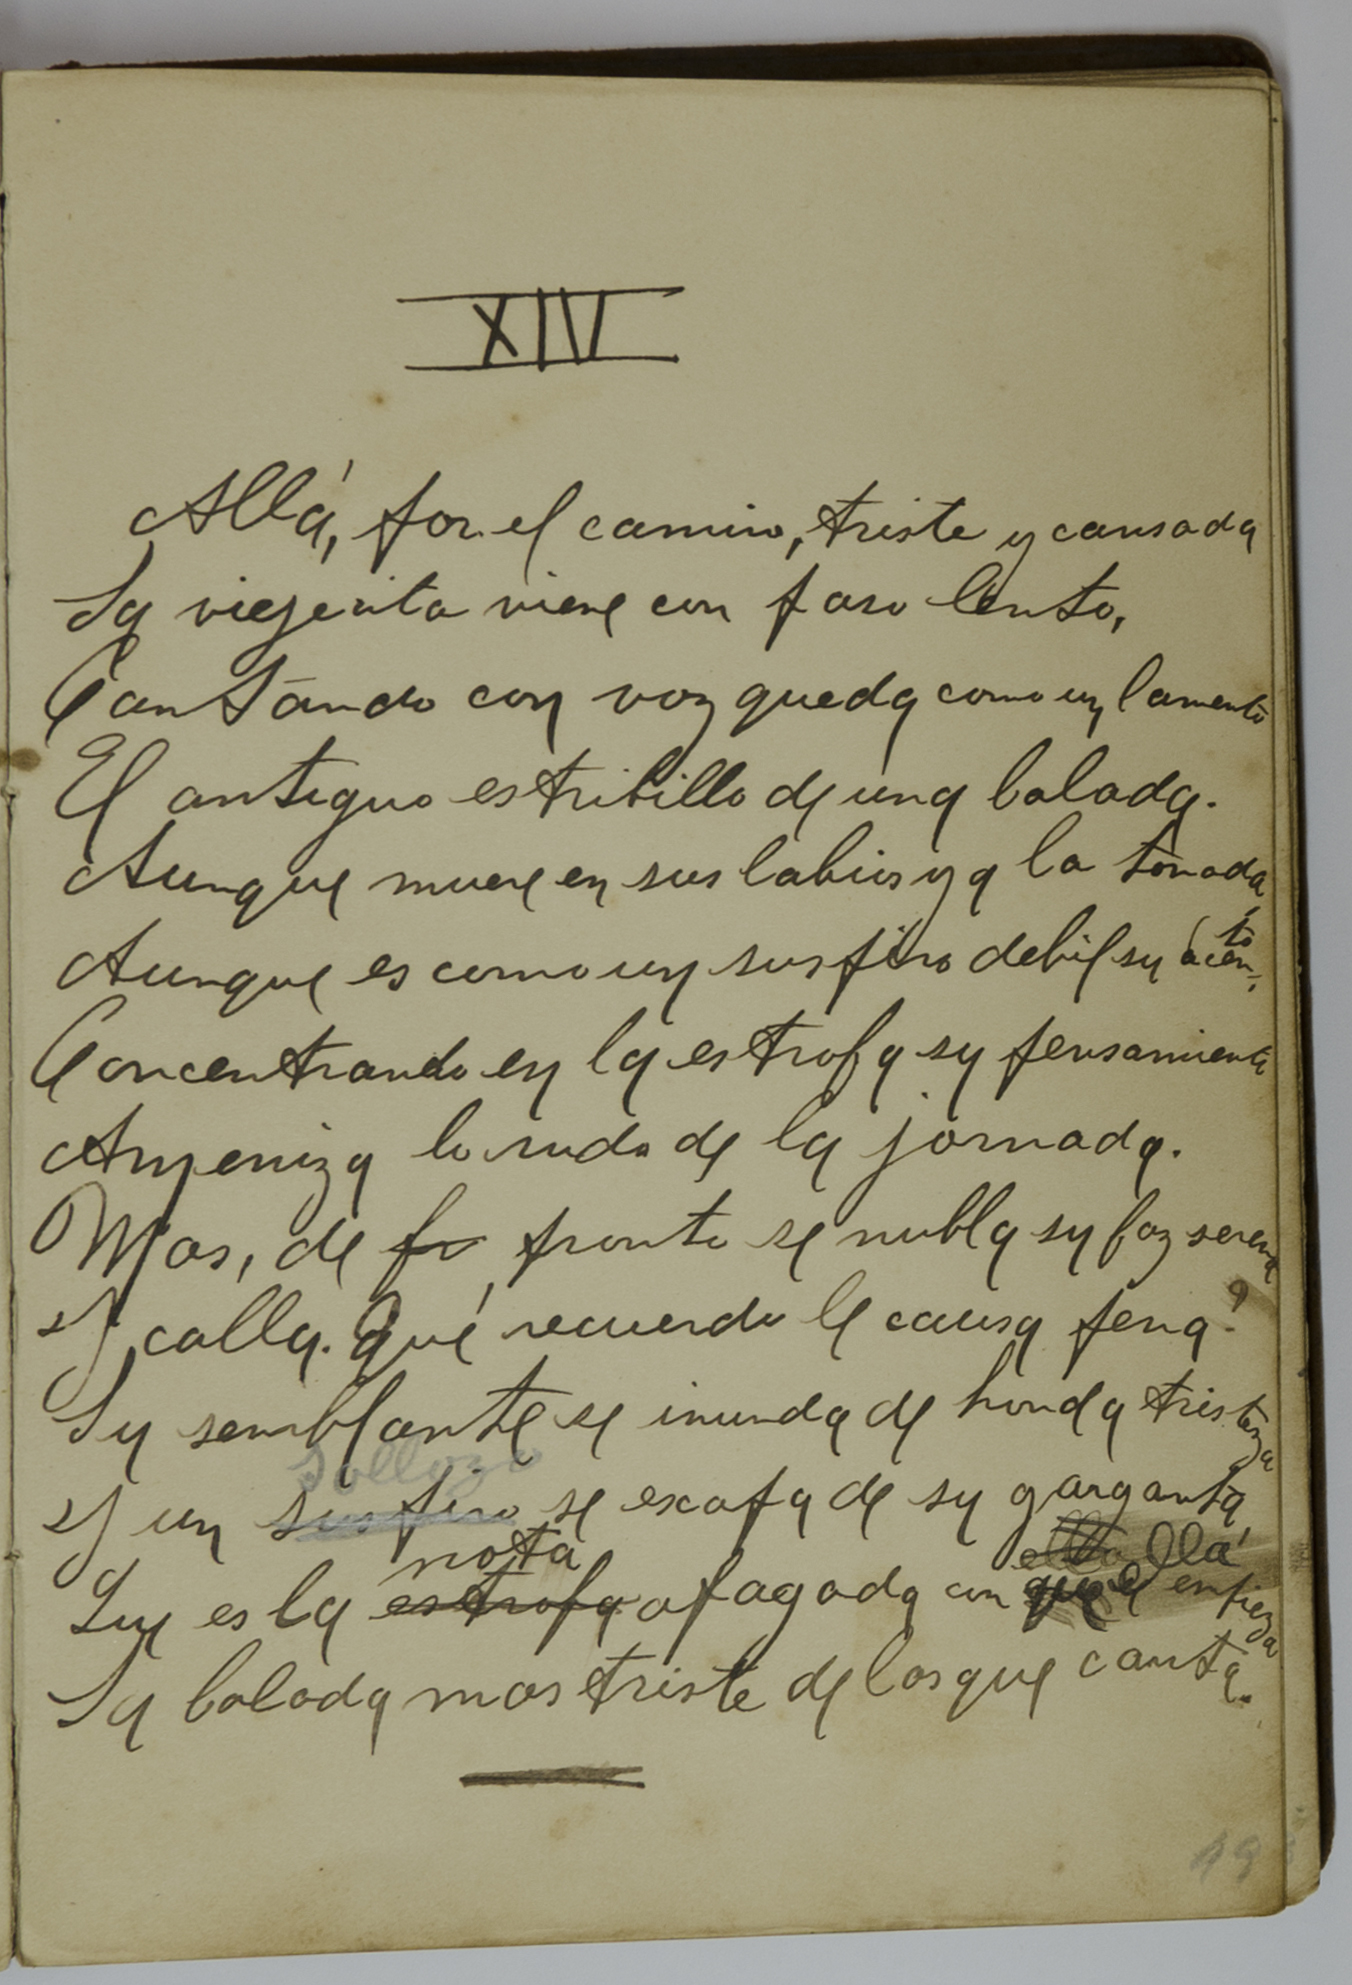 XIV
Allá, por el camino, triste y cansada
La viejecita viene con paso lento,
Cantando con voz queda como un lamento
El antiguo estribillo de una balada.
Aunque muere en sus labios ya la tonada,
Aunque es como un suspiro debil su acento,
Concentrando en la estrofa su pensamiento
Ameniza lo rudo de la jornada.
Mas, de pronto se nubla su faz serena
Y calla. Qué recuerdo le causa pena?
Su semblante se inunda de honda tristeza
sollozo
Y un suspiro se escapa de su garganta,
nota ella
Que es la estrofa apagada con que ella empieza
La balada mas triste de las que canta.
19